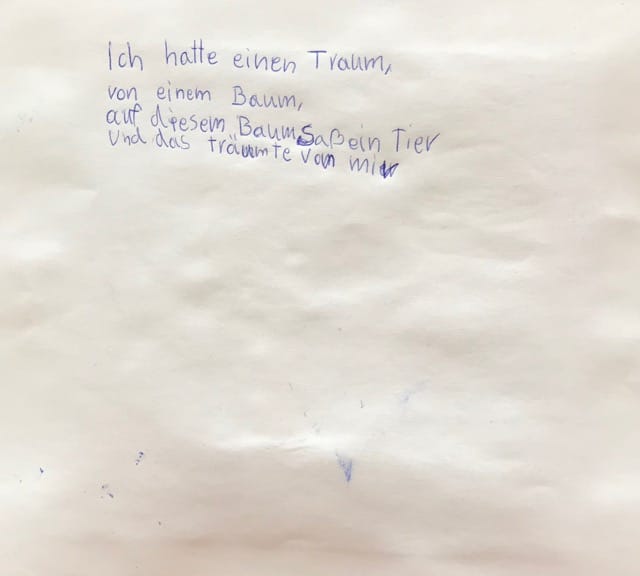 Ich hatte einen Traum,
von einem Baum,
auf diesem Baum saß ein Tier
und das träumte von mir